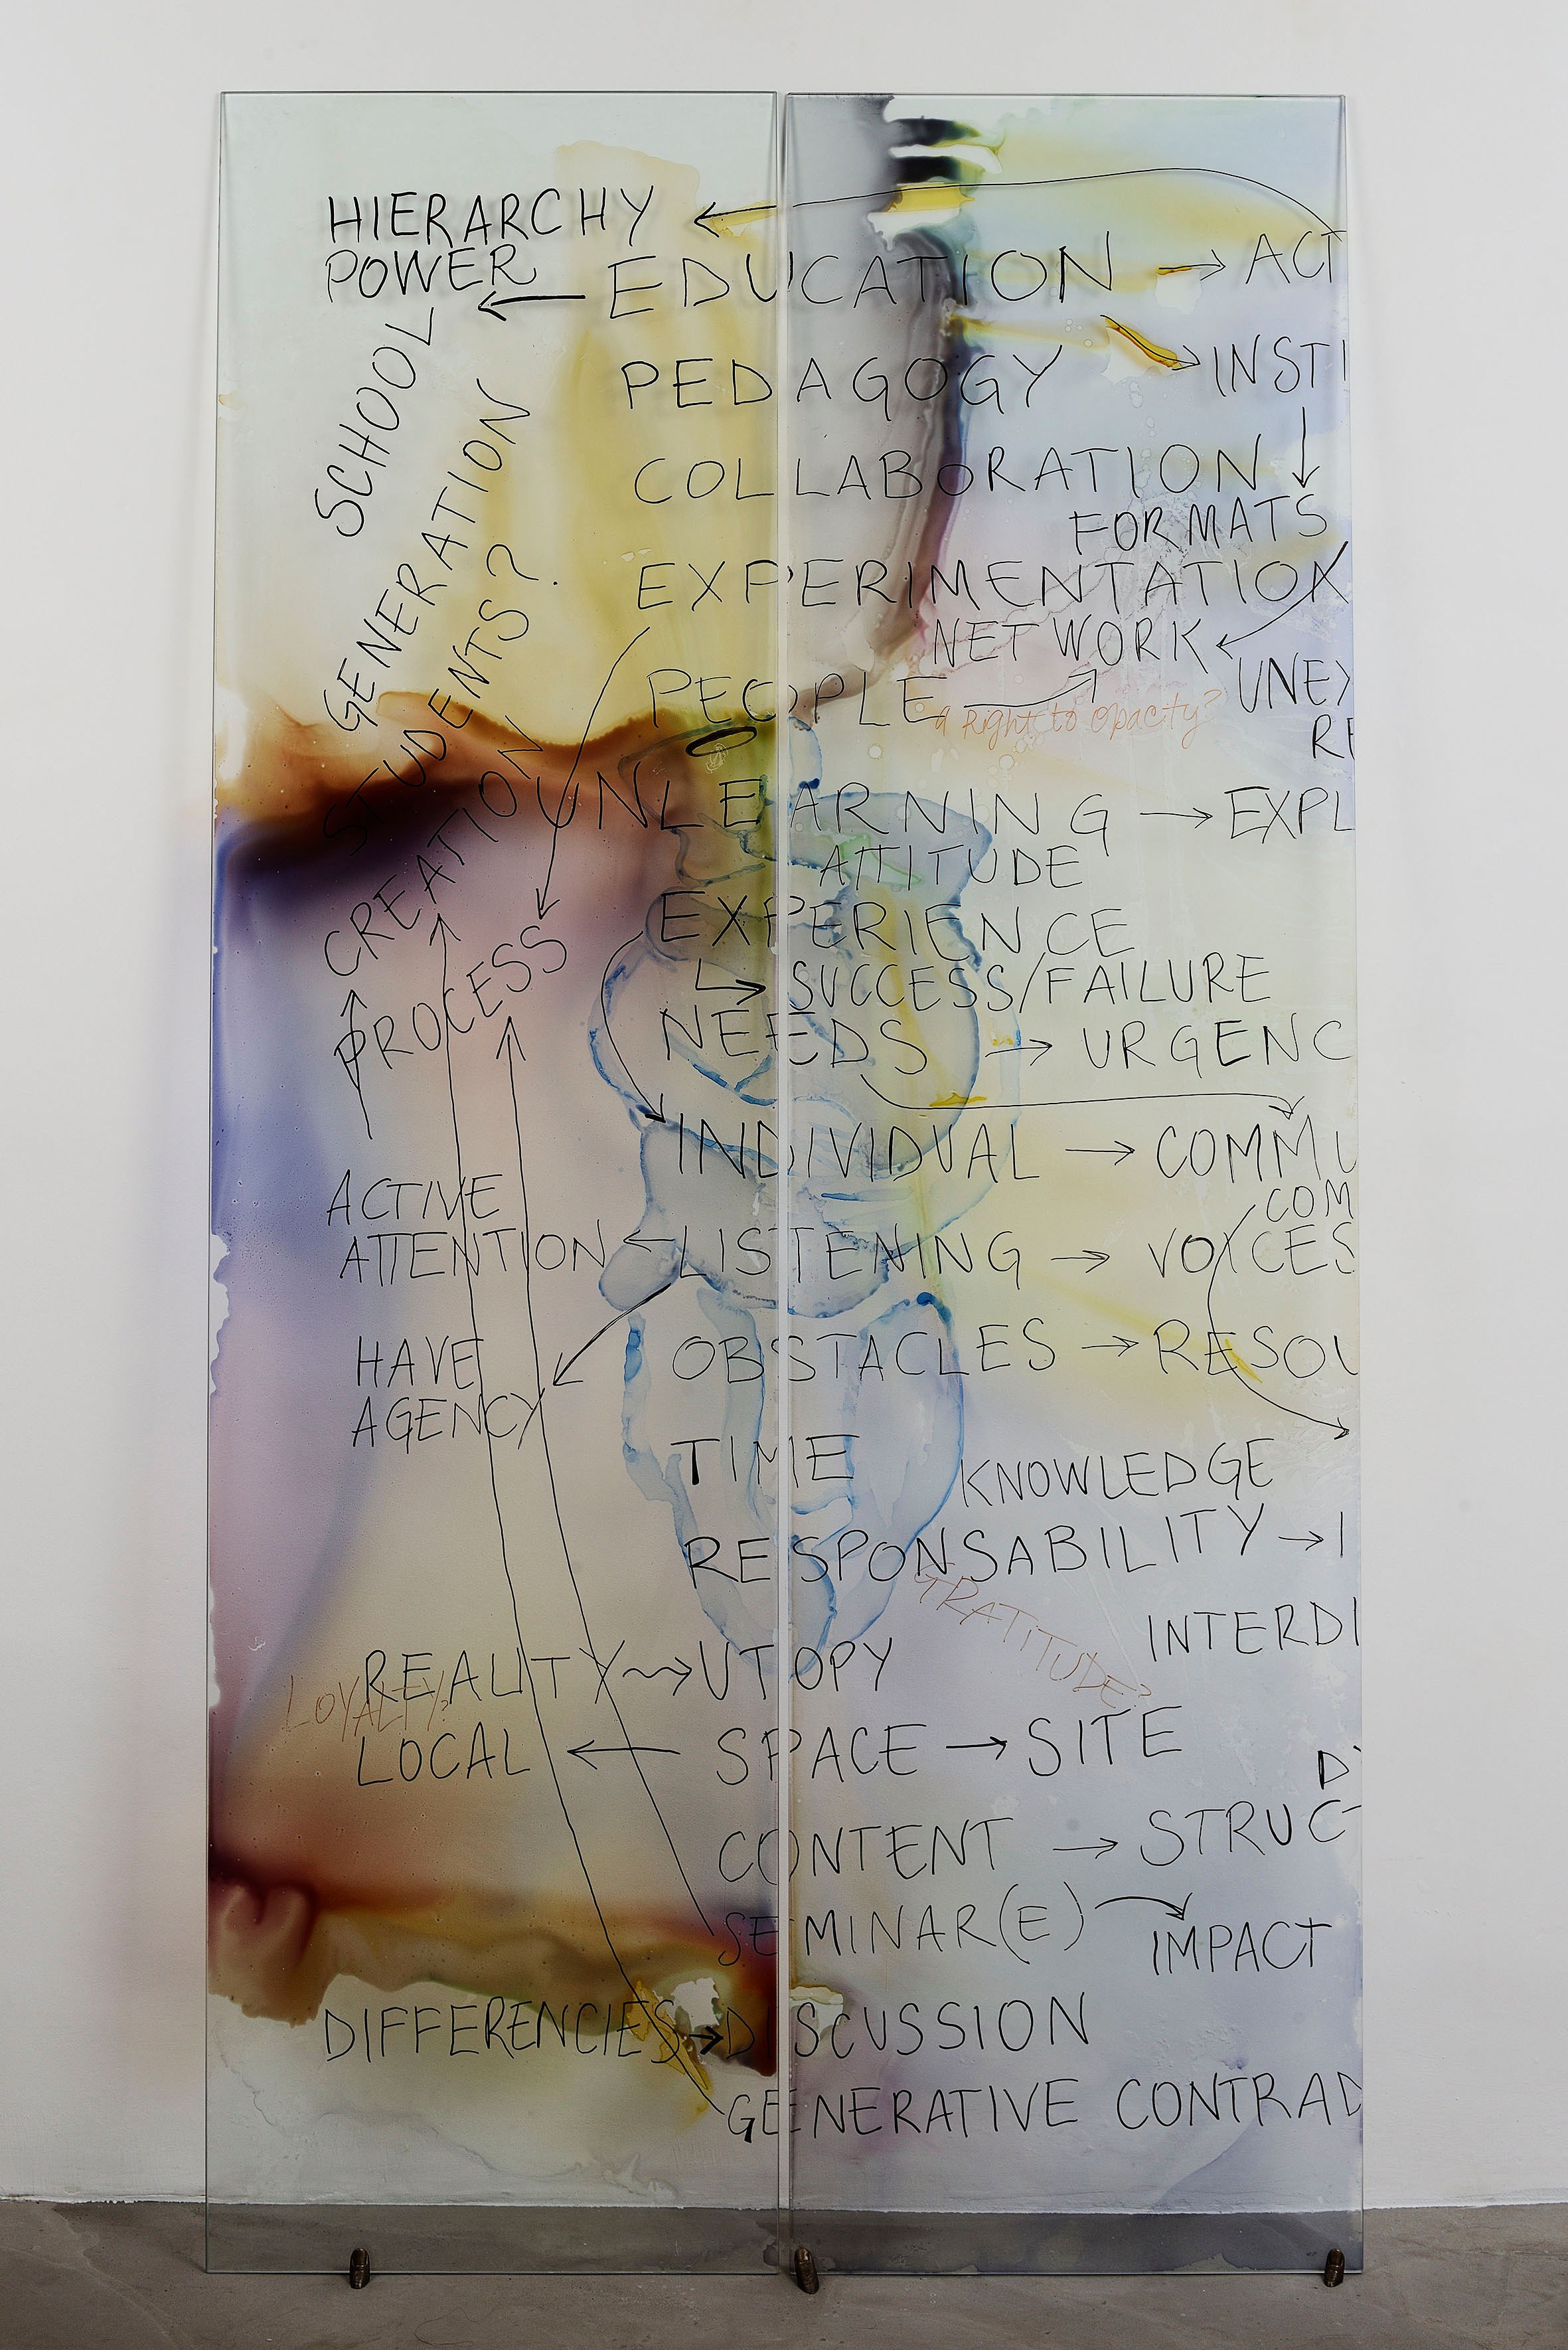 HIERARCHY
POWER
EDUCATION → ACT
SCHOOL
PEDAGOGY
INSTI
GENERATION
COLLABORATION
FORMATS
STUDENTS?
EXPERIMENTATION
NETWORK
PEOPLE
UNEX
a Right to opacity?
RE
CREATION
UNLEARNING → EXPL
ATTITUDE
PROCESS
EXPERIENCE
SUCCESS/FAILURE
NEEDS → URGENC
INDIVIDUAL → COMMU
ACTIVE
COM
ATTENTION ← LISTENING → VOICES
HAVE
OBSTACLES → RESOU
AGENCY
TIME
KNOWLEDGE
RESPONSABILITY → I
GRATITUDE?
INTERDI
REALITY → UTOPY
LOYALTY?
LOCAL ← SPACE → SITE
D
CONTENT → STRUCT
SEMINAR(E)
IMPACT
DIFFERENCIES → DISCUSSION
GENERATIVE CONTRAD